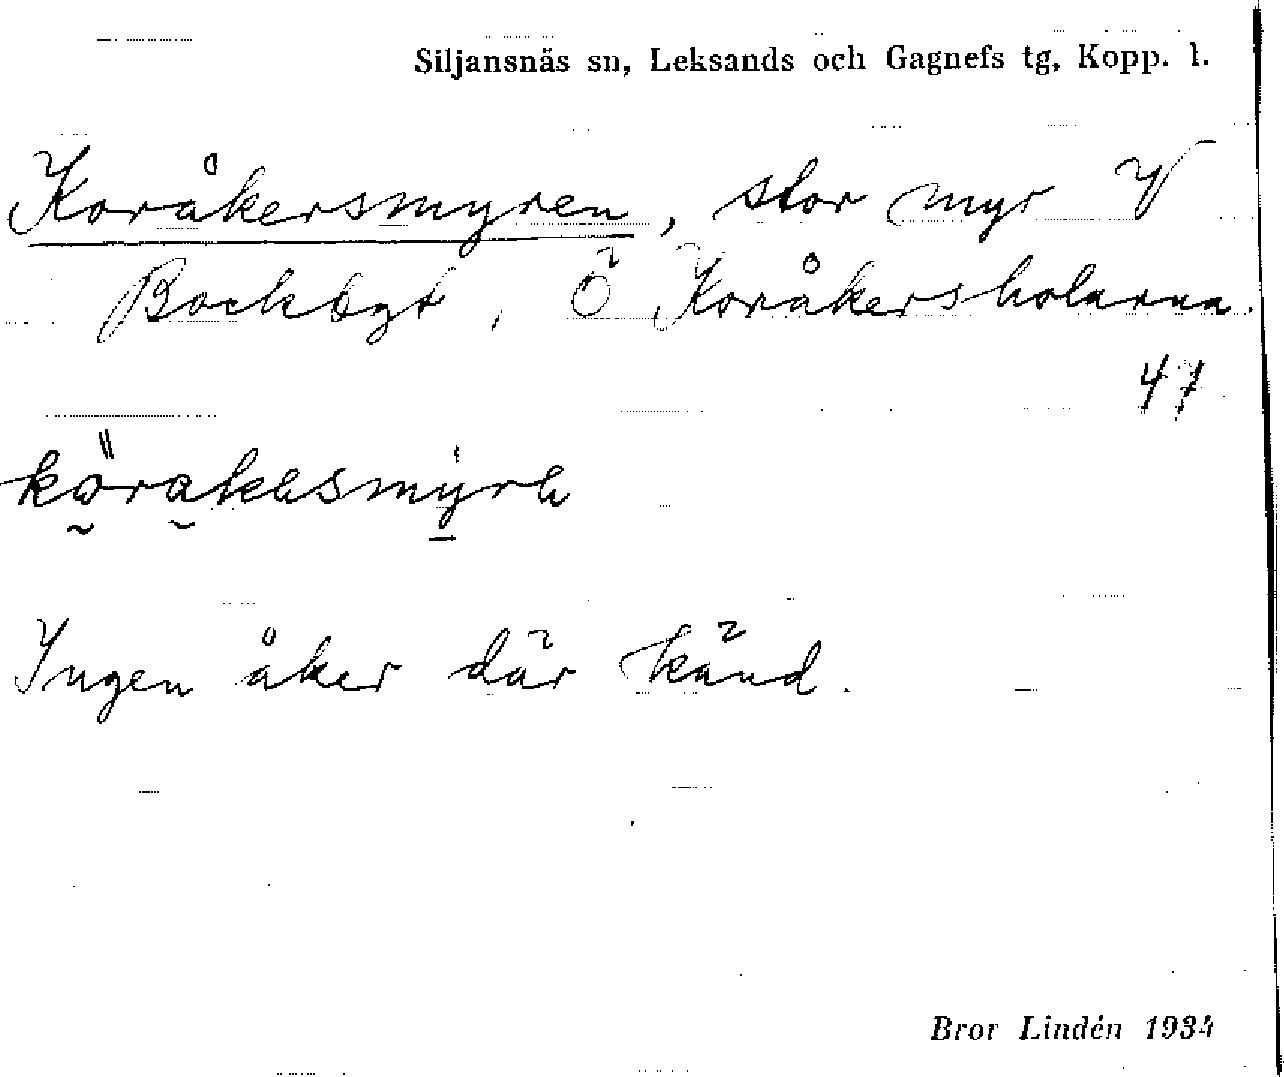 Siljansnäs sn, Leksands och Gagnefs tg, Kopp. l.
Koråkersmyren, stor myr V
Ö Koråkersholarna.
47
Ingen åker där känd.
Bror Lindén 1934